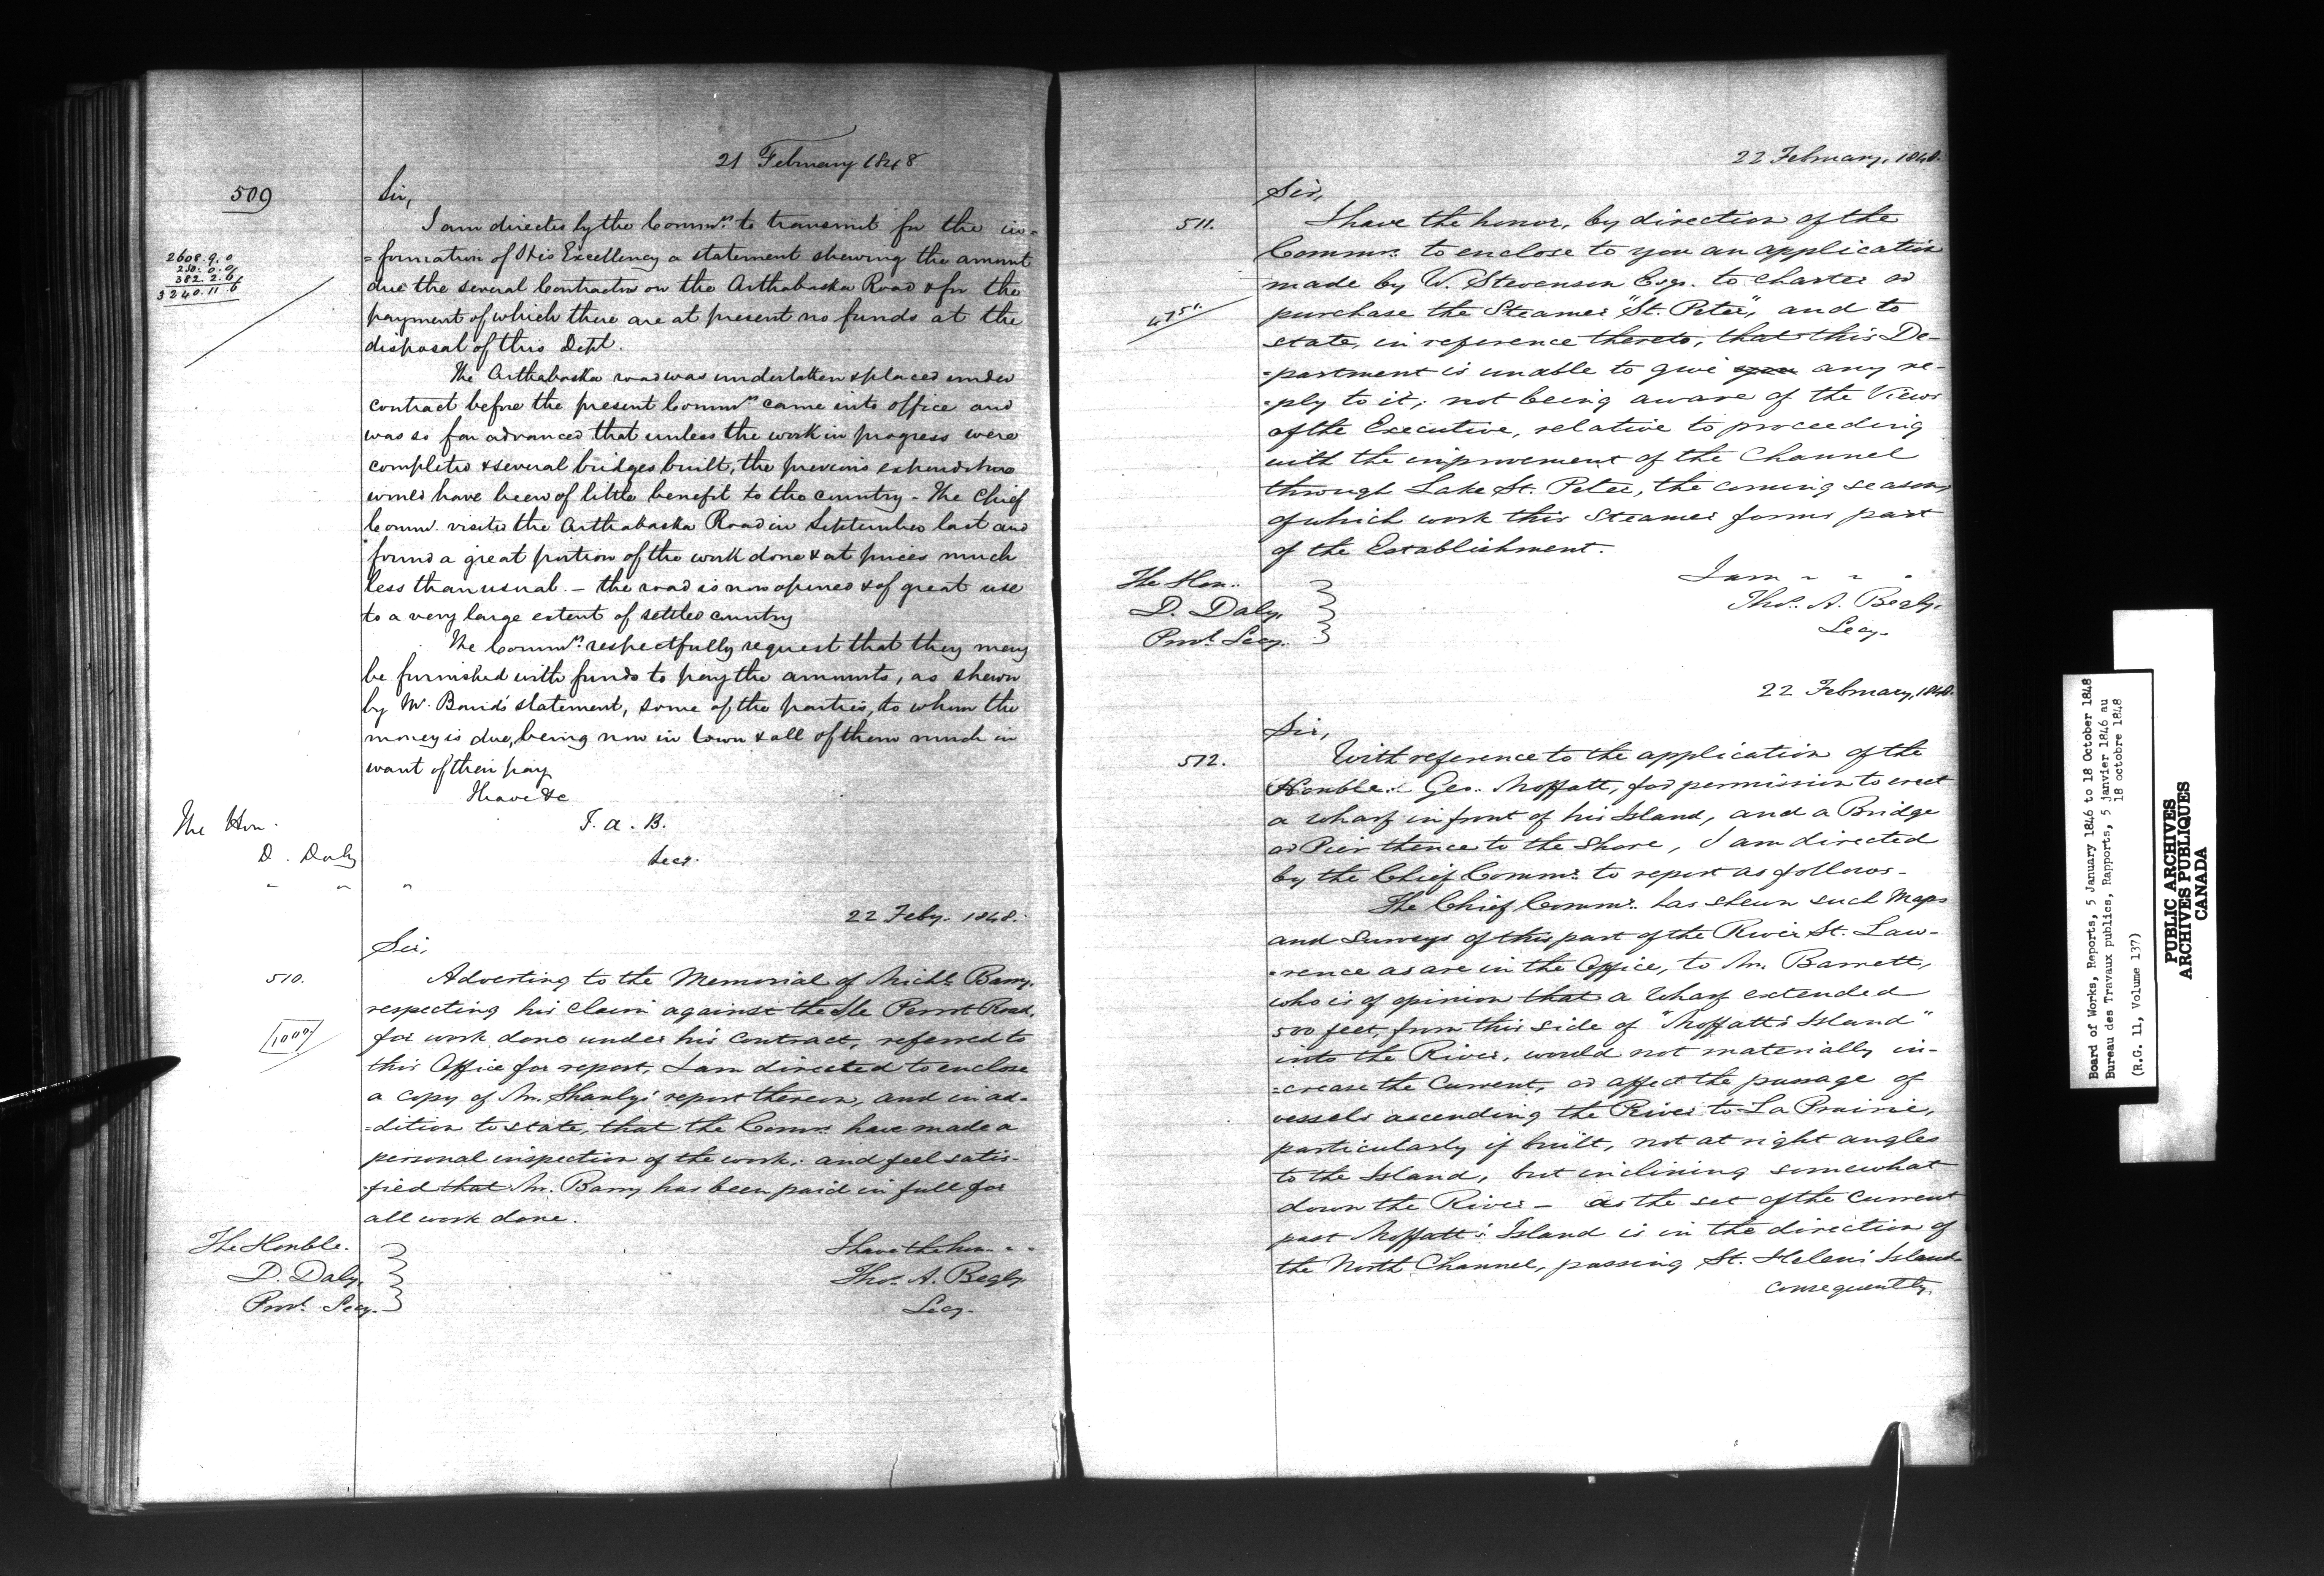 21 February 1848
509
Sir,
I am directed by the Commrs. to transmit for the in=
=formation of His Excellency a statement shewing the amount
due the several Contractors on the Arthabaska Road & for the
payment of which there are at present no funds at the
disposal of this Dept.
2608.9.0
250.0.0
382.2.6
3240.11.6
The Arthabaska road was undertaken & placed under
contract before the present Commrs came into office and
was so far advanced that unless the work in progress were
completed & several bridges built, the previous expenditure
would have been of little benefit to the country - The Chief
Commr. visited the Arthabaska Road in September last and
found a great portion of the work done & at prices much
less than usual. - the road is now opened & of great use
to a very large extent of settled country
The Commrs. respectfully request that they may
be furnished with funds to pay the amounts, as shewn
by Mr. Baird's statement, some of the parties, to whom the
money is due, being now in town & all of them much in
want of their pay
I have &c
T. a. B.
Secy.
The Hon.
D. Daly
" " "
22 Feby. 1848.
Sir,
510.
Adverting to the Memorial of Michl. Barry,
respecting his claim against the Ile Perrot Road,
for work done under his Contract, referred to
this Office for report, I am directed to enclose
a copy of Mr. Shanly's report thereon, and in ad-
=dition to state, that the Commrs. have made a
personal inspection of the work, and feel satis-
-fied that Mr. Barry has been paid in full for
all work done.
I have the hon. " "
Thos. A. Begly.
Secy.
The Honble.
D. Daly,
Provl. Secy.
22 February, 1848.
Sir,
511.
I have the honor, by direction of the
Commrs. to enclose to you an application
made by W. Stevenson Esqr. to charter or
purchase the Steamer "St. Peter", and to
state, in reference thereto, that this De-
-partment is unable to give you any re-
-ply to it, not being aware of the Views
of the Executive, relative to proceeding
with the improvement of the Channel
through Lake St. Peter, the coming season,
of which work this Steamer forms part
of the Establishment.
I am " " "
Thos. A. Begly.
Secy.
The Hon.
D. Daly,
Provl. Secy.
22 February, 1848.
Sir,
512.
With reference to the application of the
Honble. Geo. Moffatt, for permission to erect
a wharf in front of his Island, and a Bridge
or Pier thence to the Shore, I am directed
by the Chief Commr. to report as follows -
The Chief Commr. has shewn such Maps
and Surveys of this part of the River St. Law-
-rence as are in the Office, to Mr. Barrett,
who is of opinion that a Wharf extended
500 feet, from this side of "Moffatt's Island"
into the River, would not materially in-
=crease the Current, or affect the passage of
vessels ascending the River to La Prairie,
particularly if built, not at right angles
to the Island, but inclining somewhat
down the River - as the set of the Current
past Moffatt's Island is in the direction of
the North Channel, passing St. Helen's Island
consequently,
Board of Works, Reports, 5 January 1846 to 18 October 1848
Bureau des Travaux publics, Rapports, 5 janvier 1846 au
18 octobre 1848
(R.G. 11, Volume 137)
PUBLIC ARCHIVES
ARCHIVES PUBLIQUES
CANADA